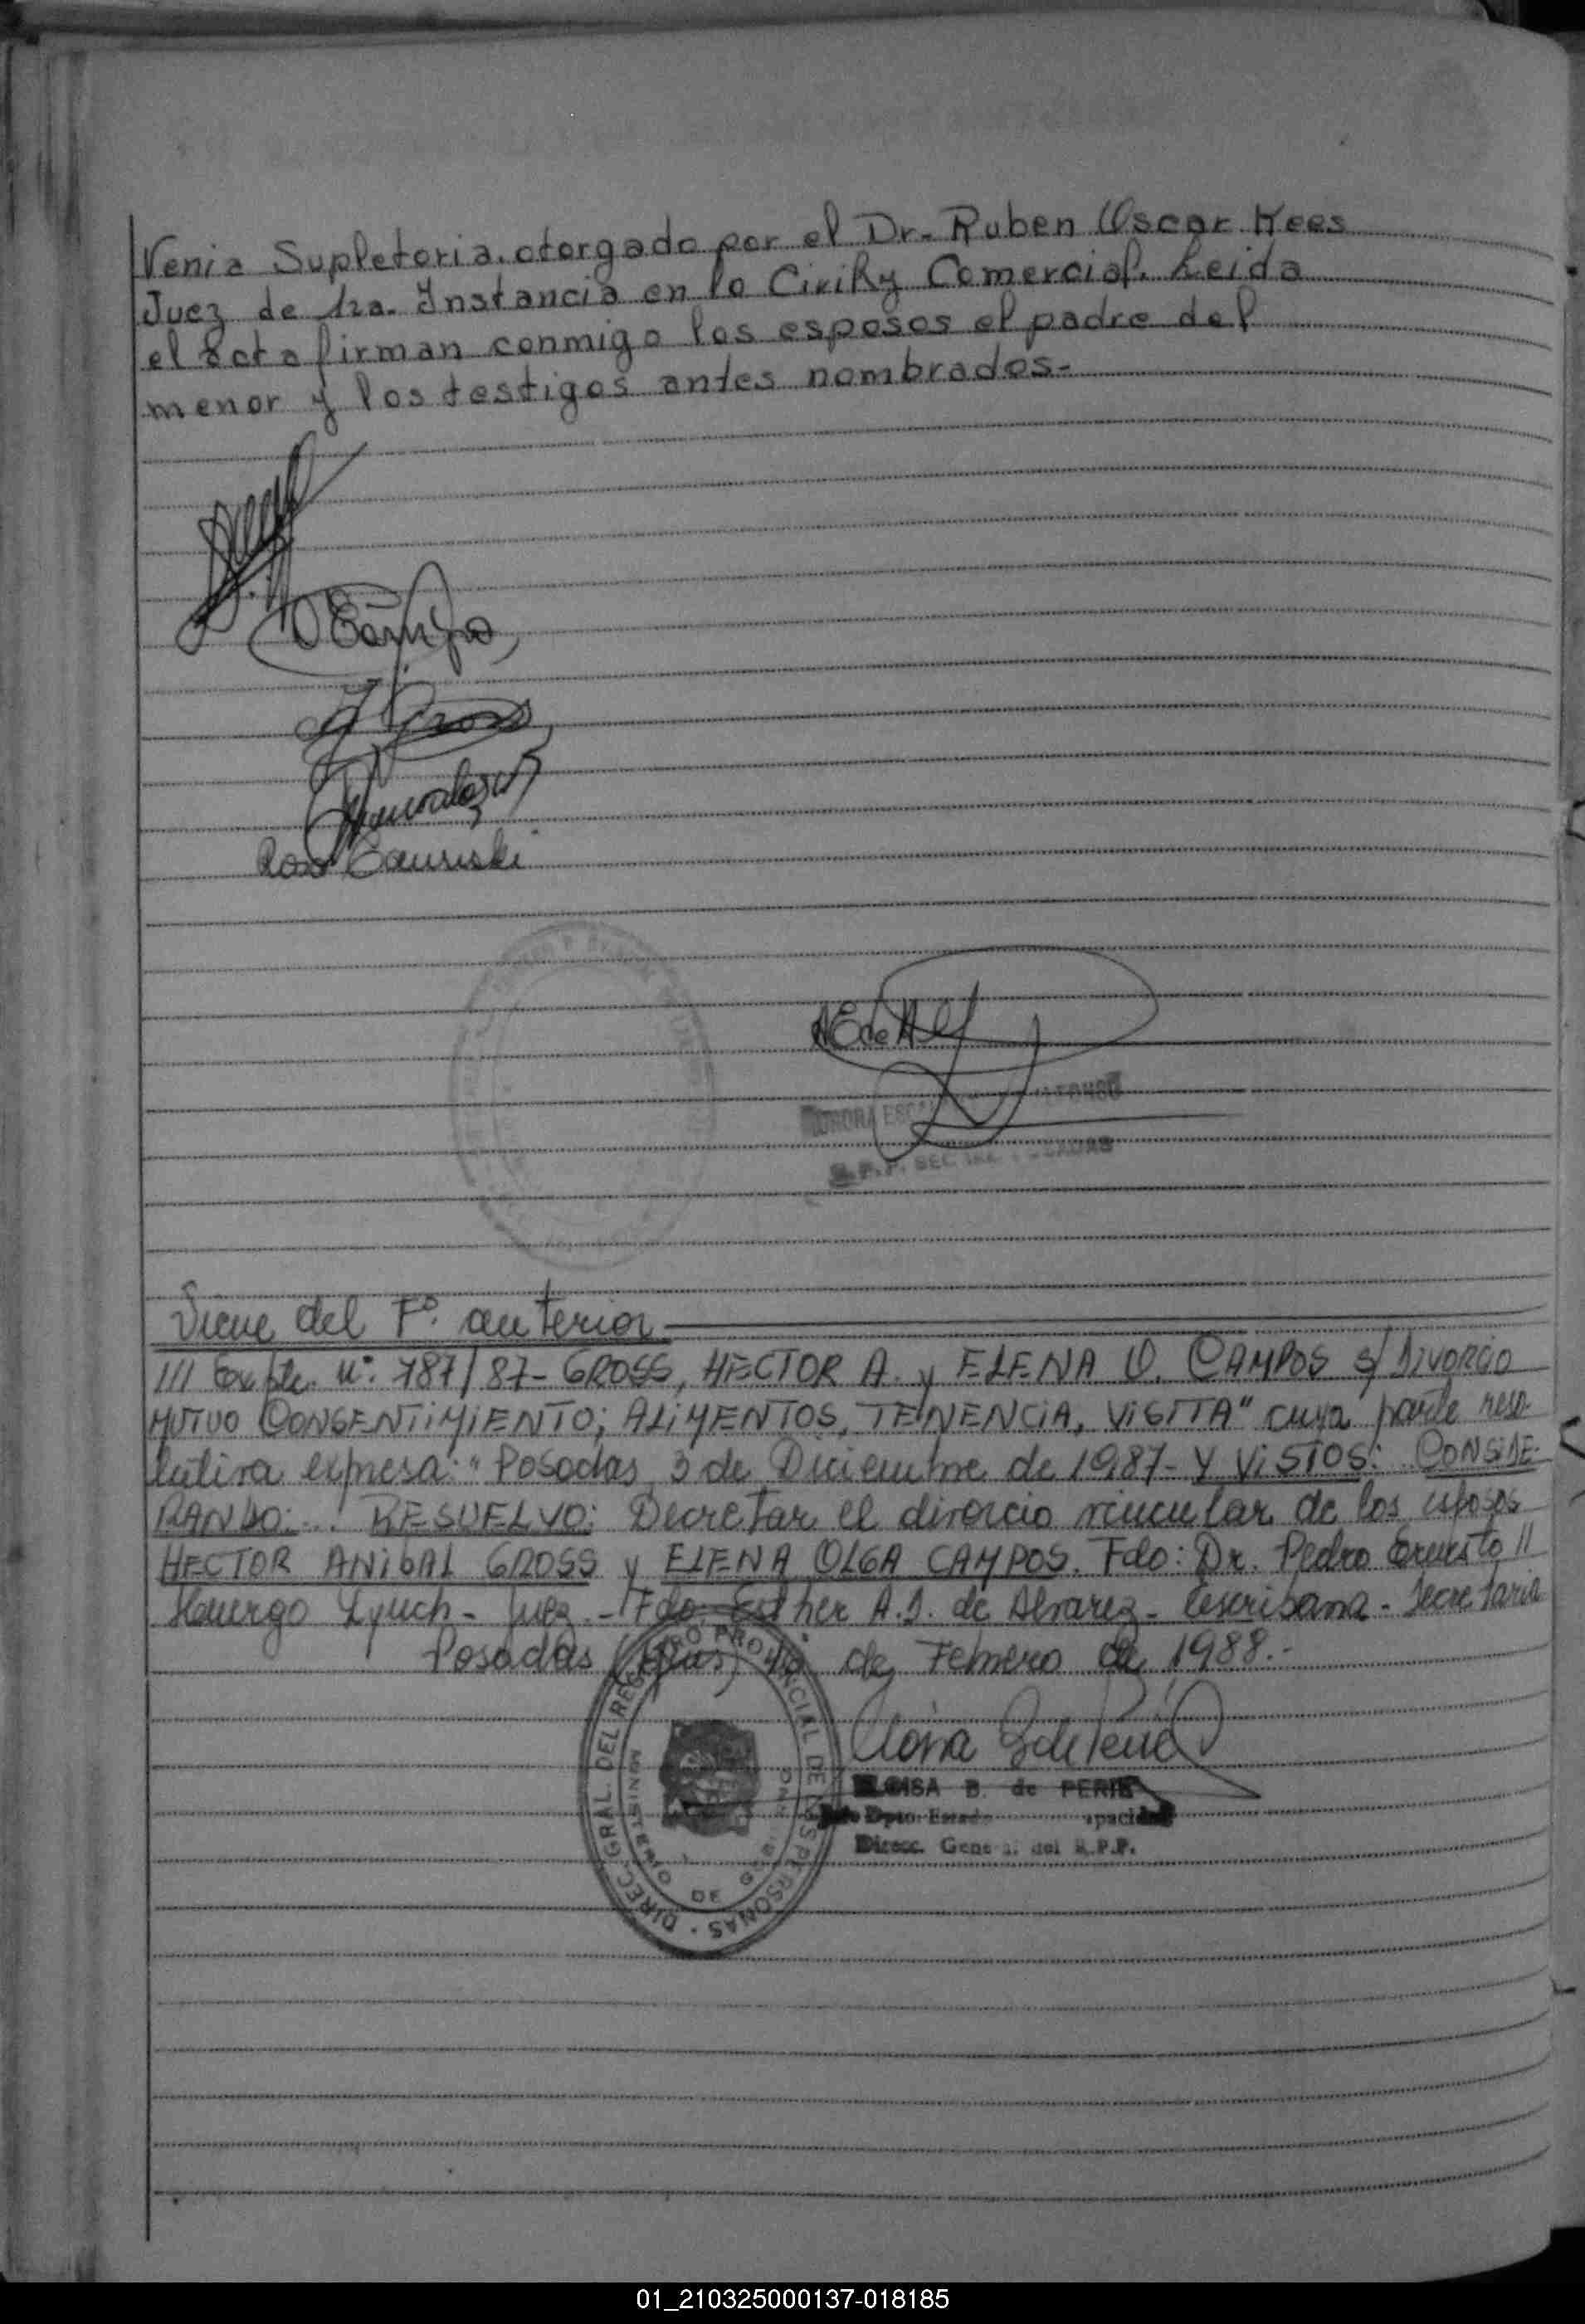 Venia Supletoria. otorgado por el Dr. Ruben Oscar Kees
Juez de 1ra. Instancia en lo Civil y Comercial. Leida
el acta firman conmigo los esposos el padre del
menor y los testigos antes nombrados.-
OCampos
Gross
Rosa
AEdeAlf
AURORA ESC ALFONSO
R.P.P. SEC. POSADAS
Viene del Fº. anterior
/// Expte. Nº. 787/87- GROSS, HECTOR A. y ELENA O. CAMPOS s/ DIVORCIO
MUTUO CONSENTIMIENTO; ALIMENTOS, TENENCIA, VISITA" cuya parte reso-
lutiva expresa: "Posadas, 3 de Diciembre de 1987- Y VISTOS: CONSIDE-
RANDO:... RESUELVO: Decretar el divorcio vincular de los esposos
HECTOR ANIBAL GROSS y ELENA OLGA CAMPOS. Fdo: Dr. Pedro Ernesto //
Huergo Lynch- Juez.- Fdo. Esther A.J. de Alvarez- Escribana- Secretaria
Posadas (Mnes) de Febrero de 1988.-
ELOISA B. de PERIE
Jefe Dpto. Estado apacidad
Direcc. General del R.P.P.
DIREC. GRAL. DEL REGISTRO PROVINCIAL DE LAS PERSONAS
MINISTERIO DE GOB.
01_210325000137-018185